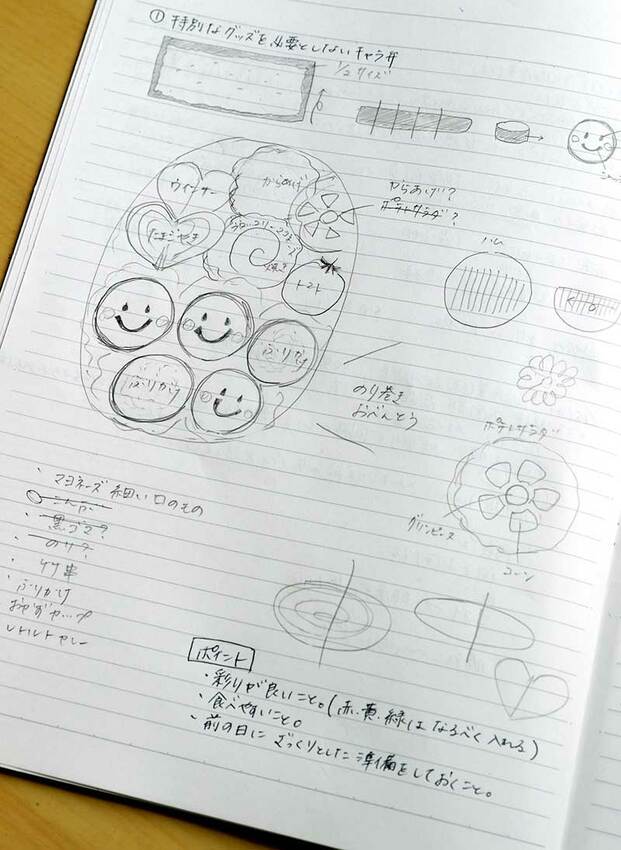 ① 特別なグッズを必要としないキャラ弁
1/2サイズ
ウィンナー
からあげ
からあげ?
ポテトサラダ?
たまごやき
焼き
トマト
ハム
ふりかけ
ふりかけ
のり巻き
おべんとう
ポテトサラダ
グリンピース
コーン
・マヨネーズ 細い口のもの
こんぶ
・黒ゴマ?
・のり?
・竹串
・ふりかけ
おかずカップ
レトルトカレー
ポイント
・彩りが良いこと。(赤、黄、緑はなるべく入れる)
・食べやすいこと。
・前の日にざっくりとした準備をしておくこと。